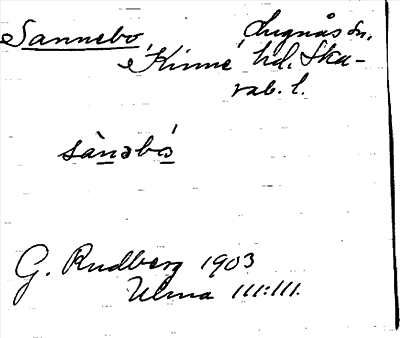 Sannebo, Lugnås sn,
Kinne hd. Ska-
rab. l.
sànəbó
G. Rudberg 1903
Ulma 111:111.